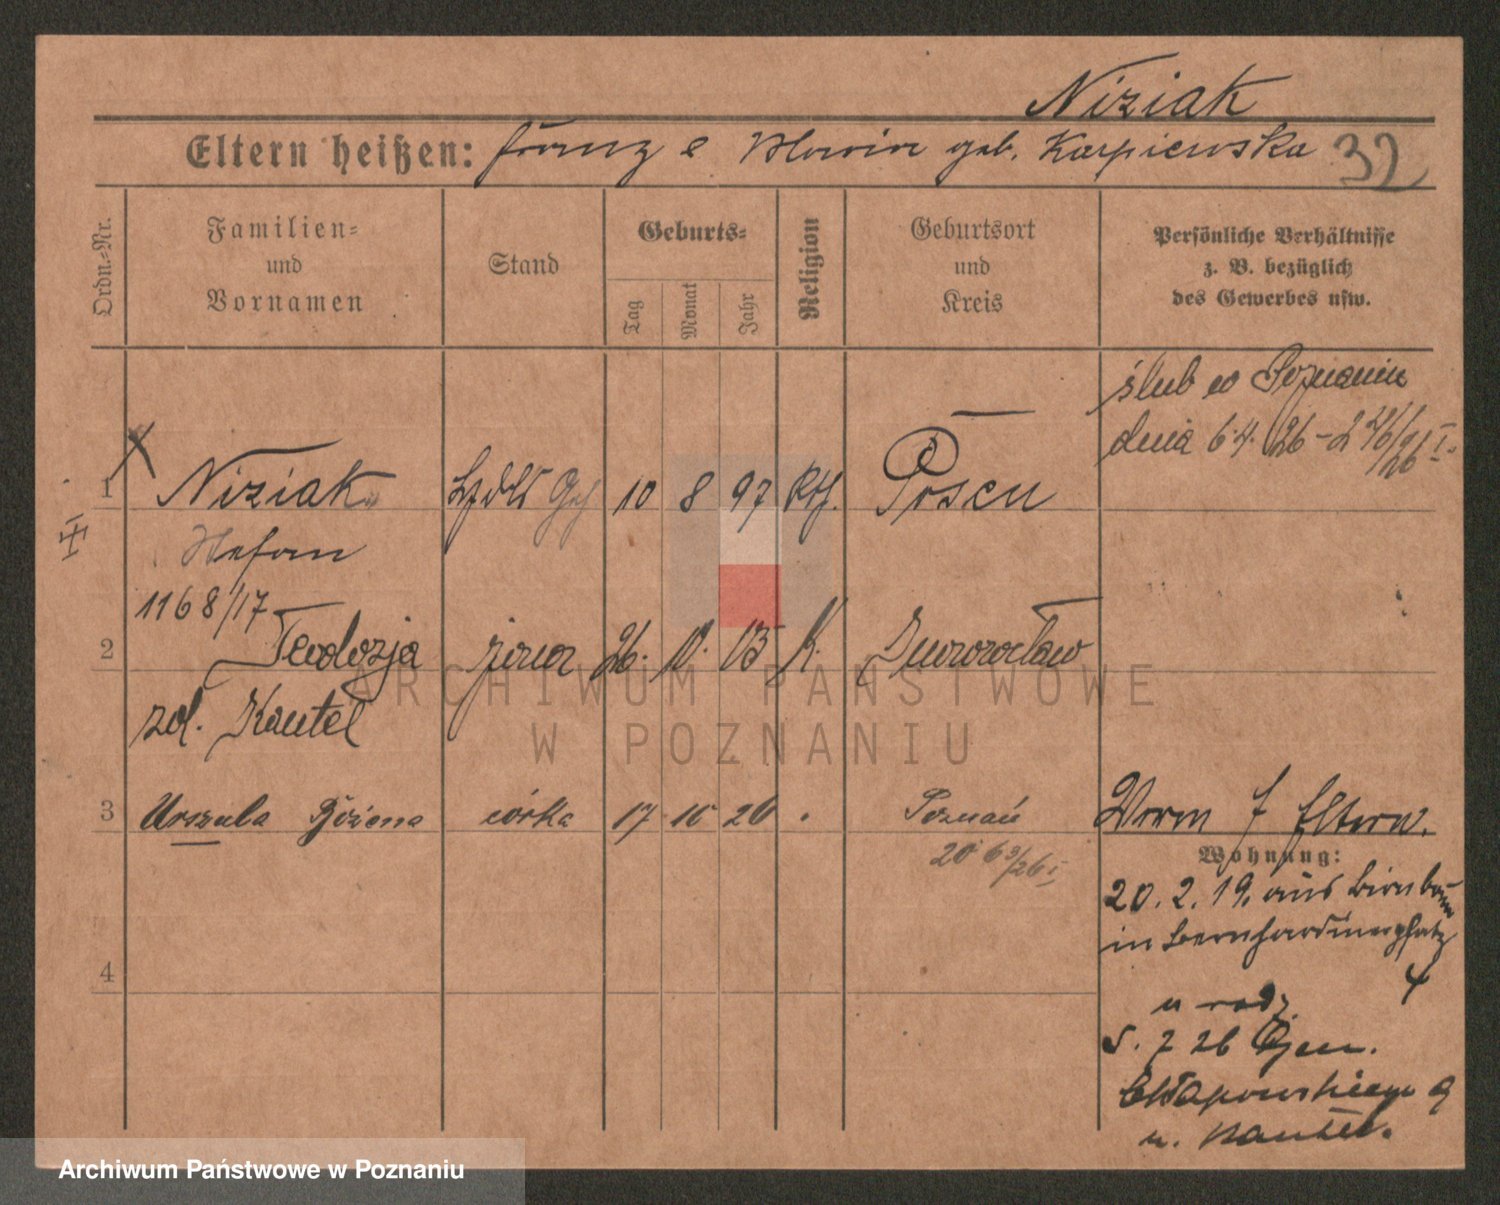 Niziak
Eltern heißen: Franz e Maria geb. Karpiewska 32
Ordn.-Nr.
Familien-
und
Vornamen
Stand
Geburts-
Tag
Monat
Jahr
Religion
Geburtsort
und
Kreis
Persönliche Verhältnisse
z. B. bezüglich
des Gewerbes usw.
ślub w Poznaniu
dnia 6.4.26
1 Niziak 10 8 97 Kth. Posen
Stefan
1168/17
2 Teodozja żona 26. 10. 03 K. Inowrocław
zd. Kantel
3 Urszula Bożena córka 17 10 26 Poznań
Eltern.
Wohnung:
20. 2. 19. aus Birnbaum
in Bernhardinerplatz
4
4
u rodz.
5. 7 26 Gen.
Chłapowskiego 9
u. Kantel.
ARCHIWUM PAŃSTWOWE
W POZNANIU
Archiwum Państwowe w Poznaniu